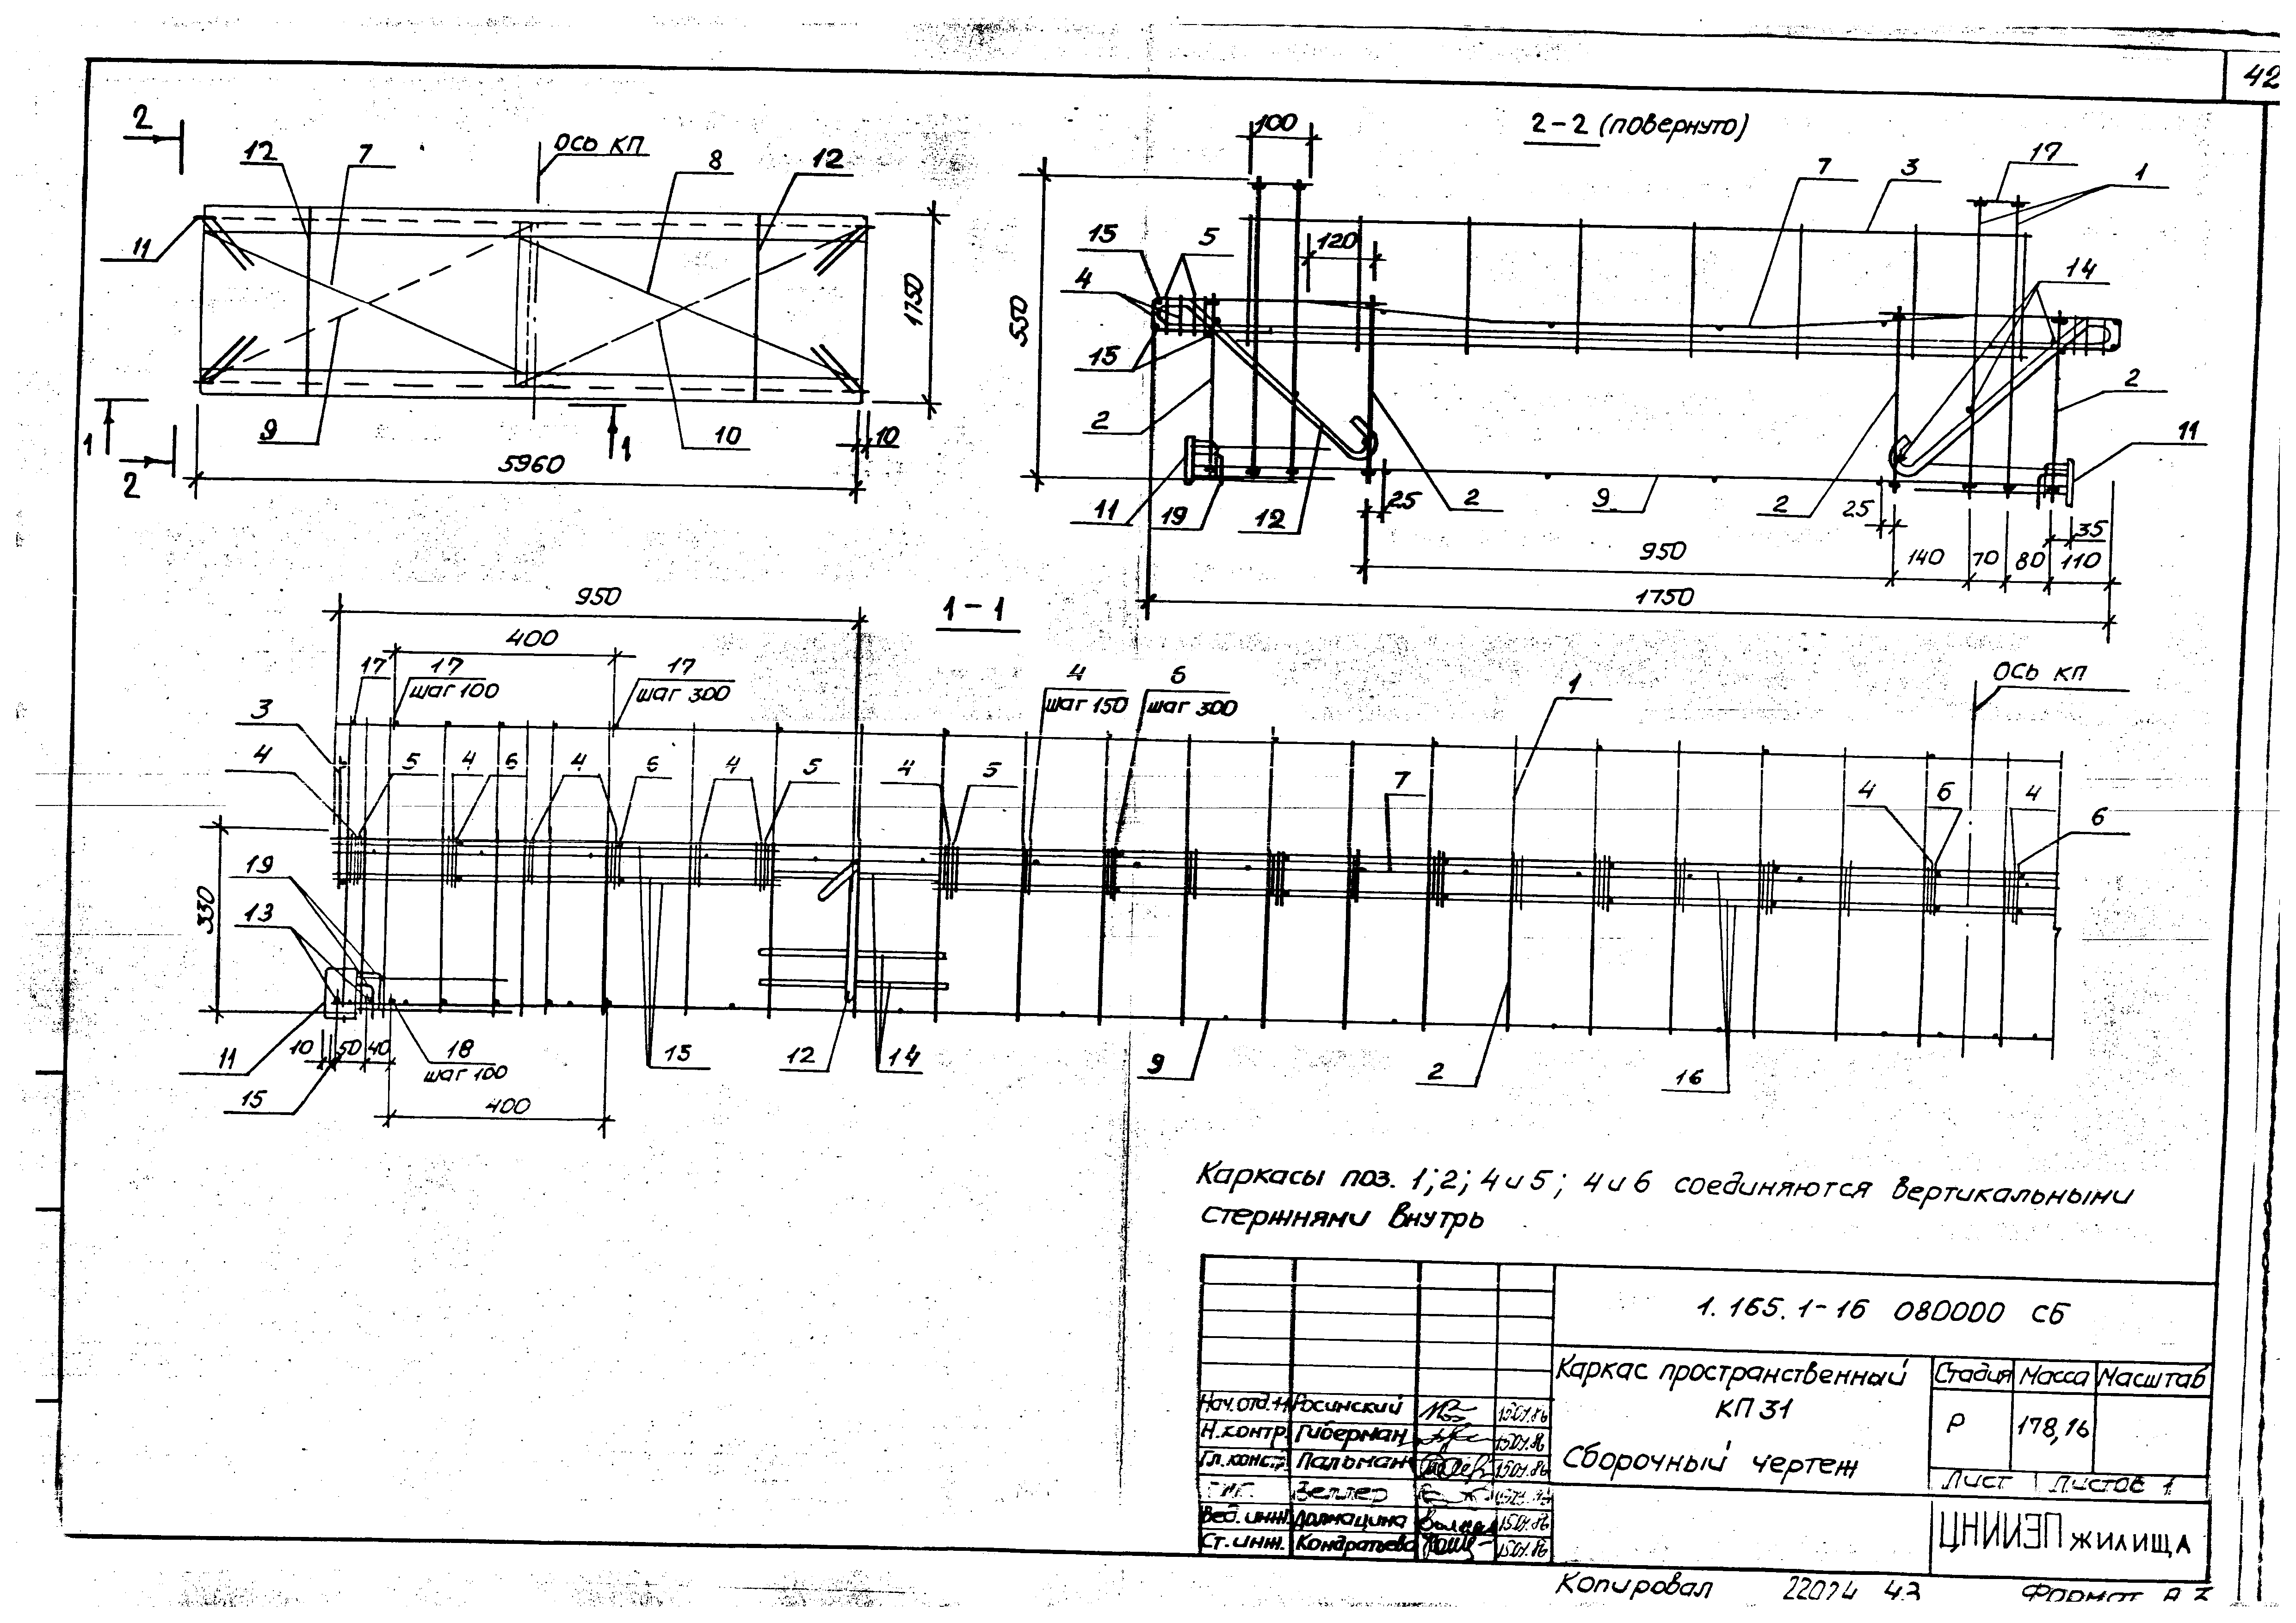 42
2
12
7
ОСЬ КП
8
12
11
1750
9
10
1
1
10
2
5960
2-2 (повернуто)
100
17
1
7
3
15
5
120
4
14
550
15
2
2
11
11
19
12
25
2
9
2
25
35
950
140
70
80
110
1750
1-1
950
400
17
17
шаг 100
17
шаг 300
4
шаг 150
6
шаг 300
1
ОСЬ КП
3
4
5
4
6
4
6
4
5
4
5
7
4
6
4
6
19
13
330
11
10
50
40
18
шаг 100
15
12
14
9
2
16
15
400
Каркасы поз. 1; 2; 4 и 5; 4 и 6 соединяются вертикальными
стержнями внутрь
1.165.1-16 080000 СБ
Каркас пространственный
КП 31
Сборочный чертеж
Стадия Масса Масштаб
Р 178,16
Лист Листов 1
ЦНИИЭП жилища
Нач.отд.11 Росинский 15.01.86
Н.контр. Гиберман 15.01.86
Гл.конст. Пальман 15.01.86
Зеллер
Вед.инж. 15.01.86
Ст.инж. Кондратьева 15.01.86
Копировал 22024 43 Формат А3